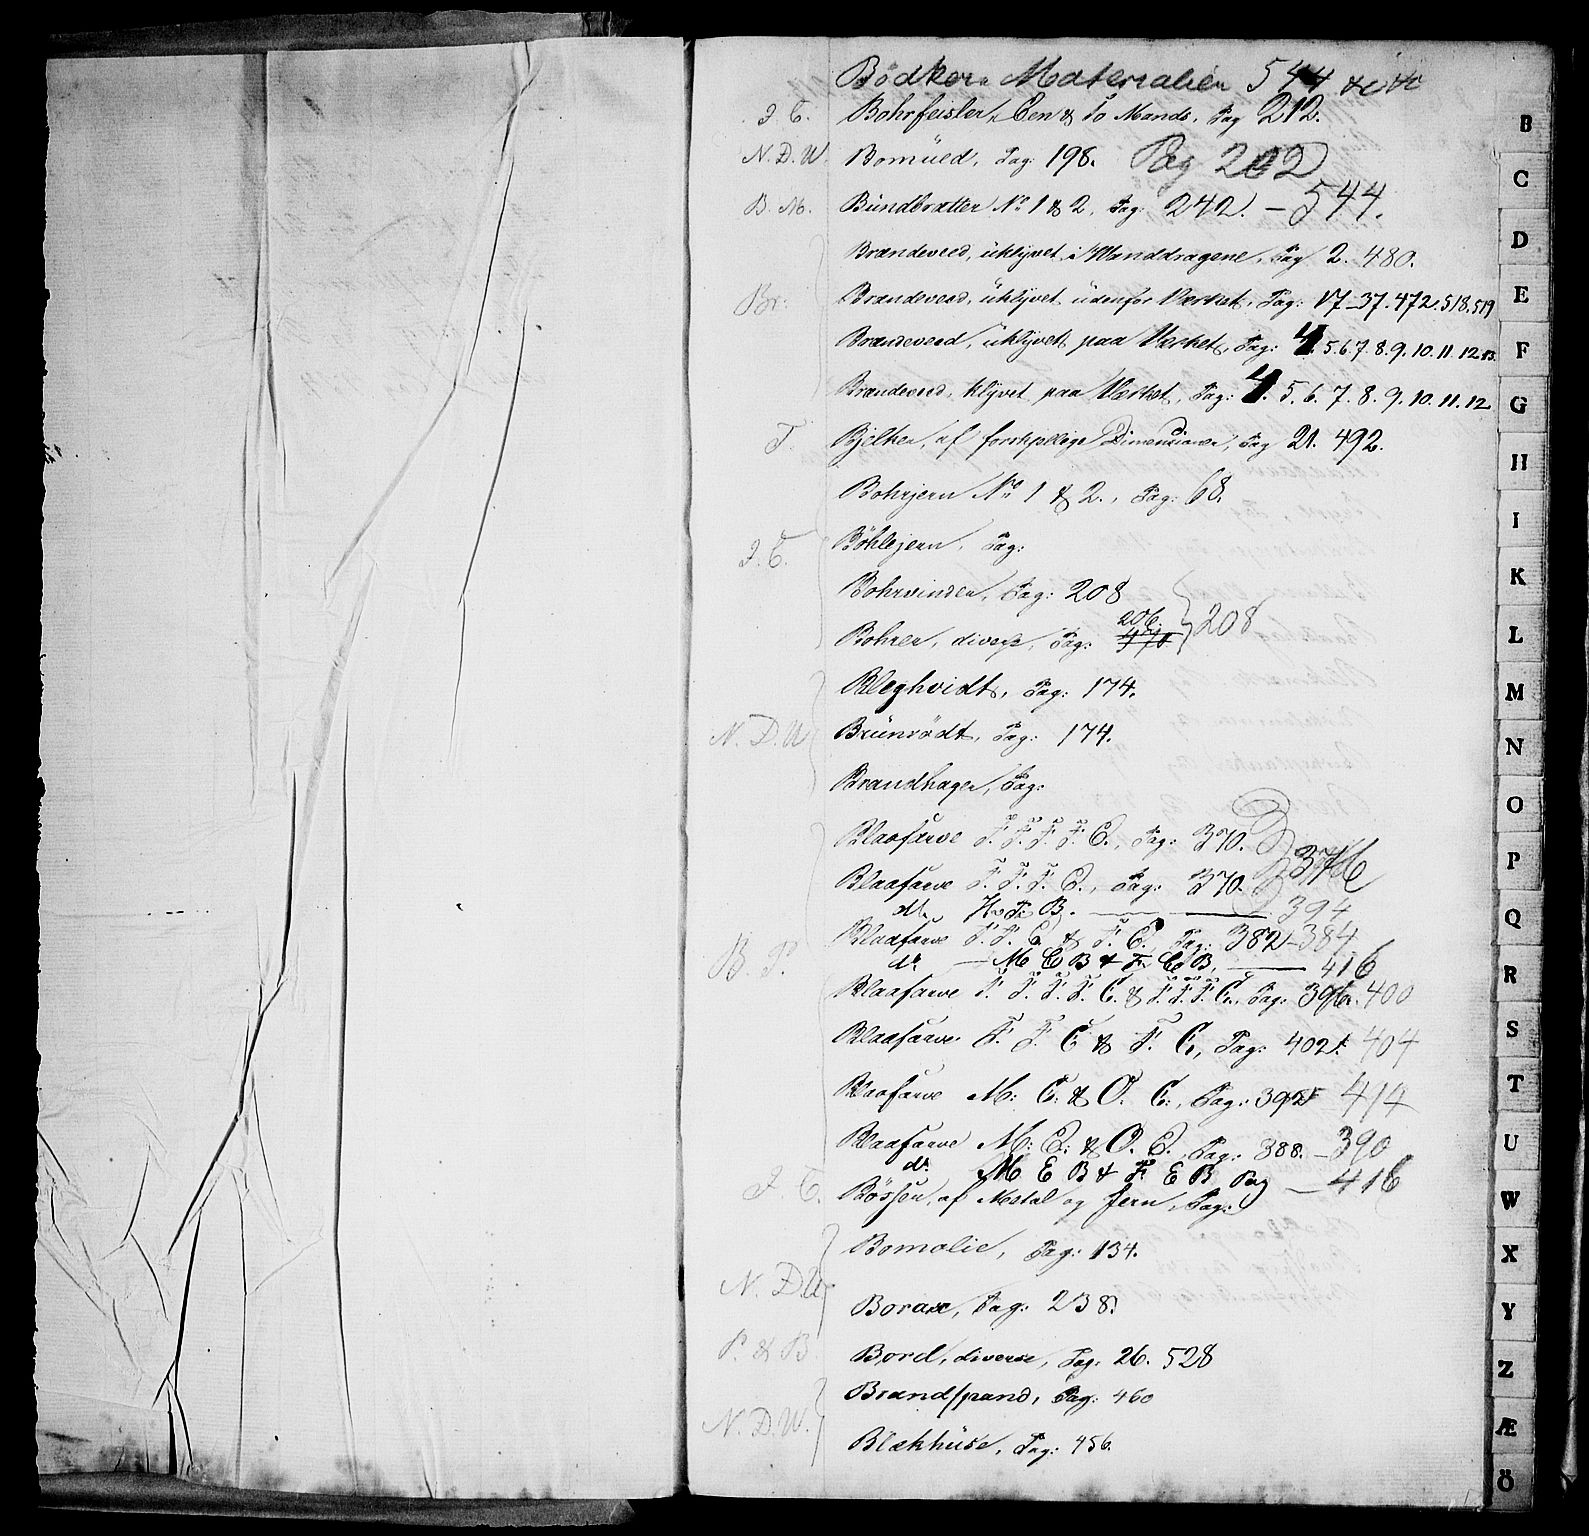 Bödker Materialier 544
J. C. Bohrfeisler, Een & To Mands. Pag 212.
N. D. W. Bomüld, Pag: 198. Pag 202
B. M. Bündbrætter No 1 & 2, Pag: 242. – 544.
Brændeveed, üklÿvet, i Wanddragene, Pag 2. 480.
Br: Brændeveed, üklÿvet üdenfor Værket, Pag: 17–37. 472. 518. 519
Brændeveed, üklÿvet paa Værket, Pag: 4. 5. 6. 7. 8. 9. 10. 11. 12. 13.
Brændeveed, klÿvet paa Værket, Pag: 4. 5. 6. 7. 8. 9. 10. 11. 12
T. Bjelker, af forskjellige Dimensioner, Pag 21. 492.
Bohrjern No 1 & 2., Pag: 68.
J. C. Böhlejern, Pag:
Bohrvinder, Pag: 208
Bohrer, diverse, Pag: 206. 208
Bleghvidt, Pag: 174.
N. D. W Brünrödt, Pag: 174.
Brandhager, Pag:
Blaafarve F. F. F. F. E., Pag: 370.
376
Blaafarve F. F. F. E., Pag: 370.
do H. F. B. — 394
Blaafarve F. F. E. & F. E., Pag: 382–384
B. P. do — M E B & F E B, — 416
Blaafarve F. F. F. F. C. & F. F. F. C., Pag: 396. 400
Blaafarve F. F. C & F. C, Pag: 402. 404
Blaafarve M: C. & O. C., Pag: 392 414
Blaafarve M: E: & O. E., Pag: 388. – 390
do M E B & F. E B Pag – 416
J. C. Bösser, af Metal og Jern, Pag:
Bomolie, Pag: 134.
N. D. W
Borax, Pag: 238.
P. & B Bord, diverse, Pag: 26. 528
Brandspand, Pag: 460
N. D. W.
Blækhüse, Pag: 456.
B
C
D
E
F
G
H
I
K
L
M
N
O
P
Q
R
S
T
U
W
X
Y
Z
Æ
Ö